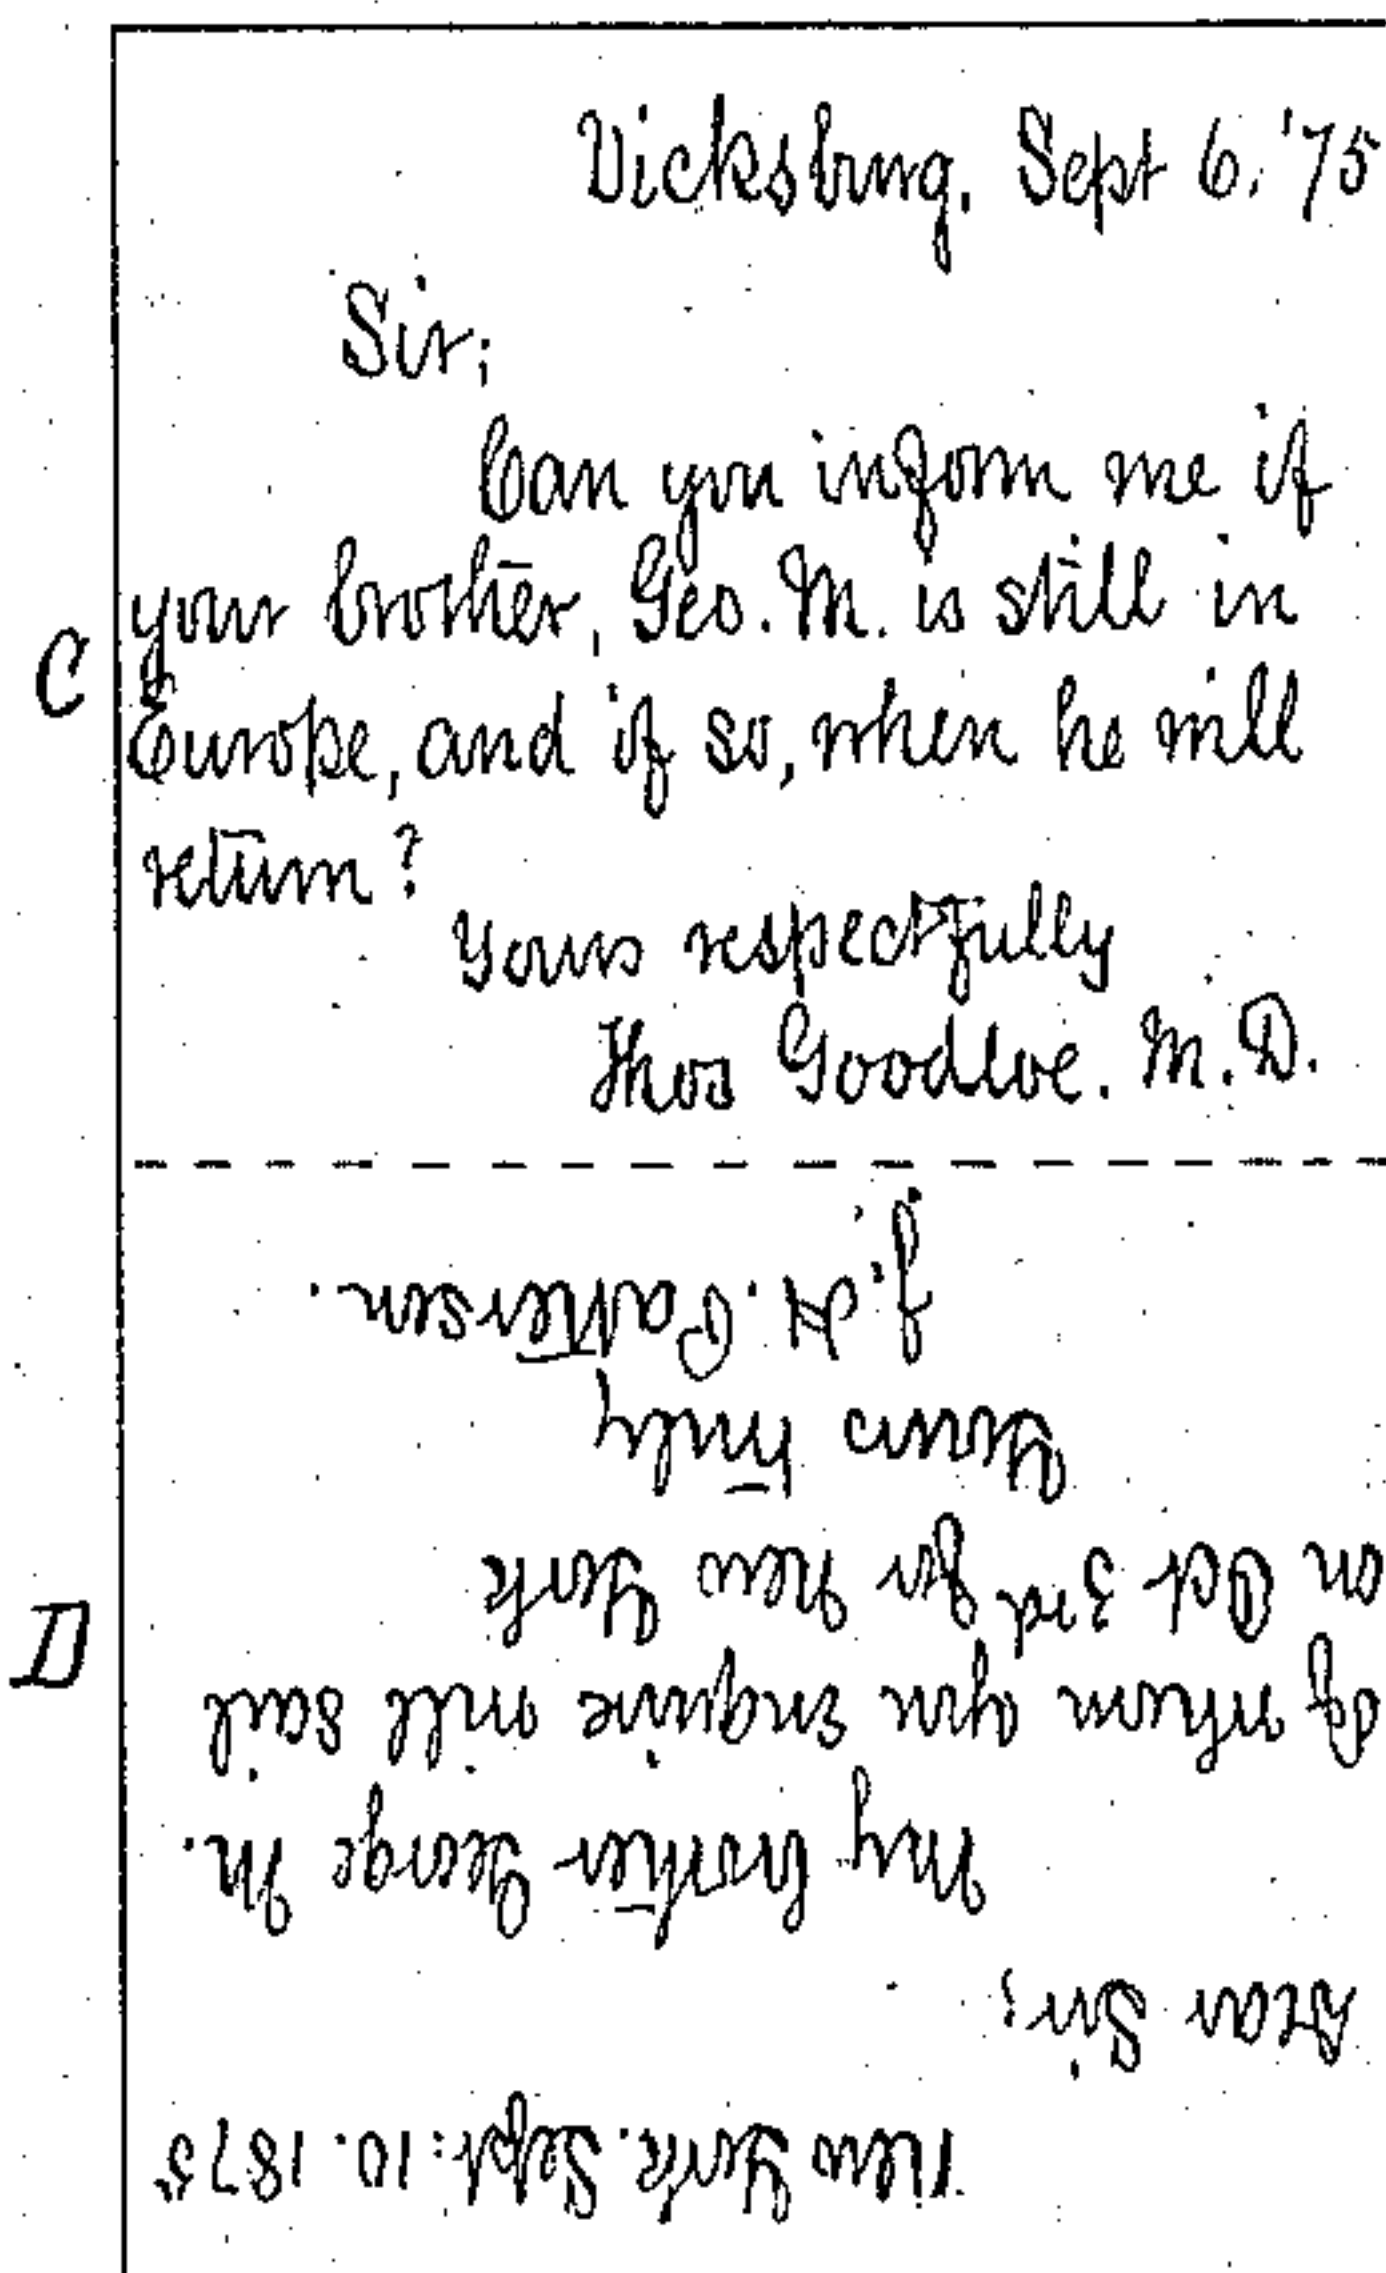 Vicksburg, Sept 6, '75
Sir;
Can you inform me if
your brother, Geo. M. is still in
Europe, and if so, when he will
return?
Yours respectfully
Thos Goodloe. M.D.
C
New York. Sept: 10. 1875
Dear Sir;
My brother George M.
of whom you enquire will sail
on Oct 3rd for New York
Yours truly
J. H. Patterson.
D